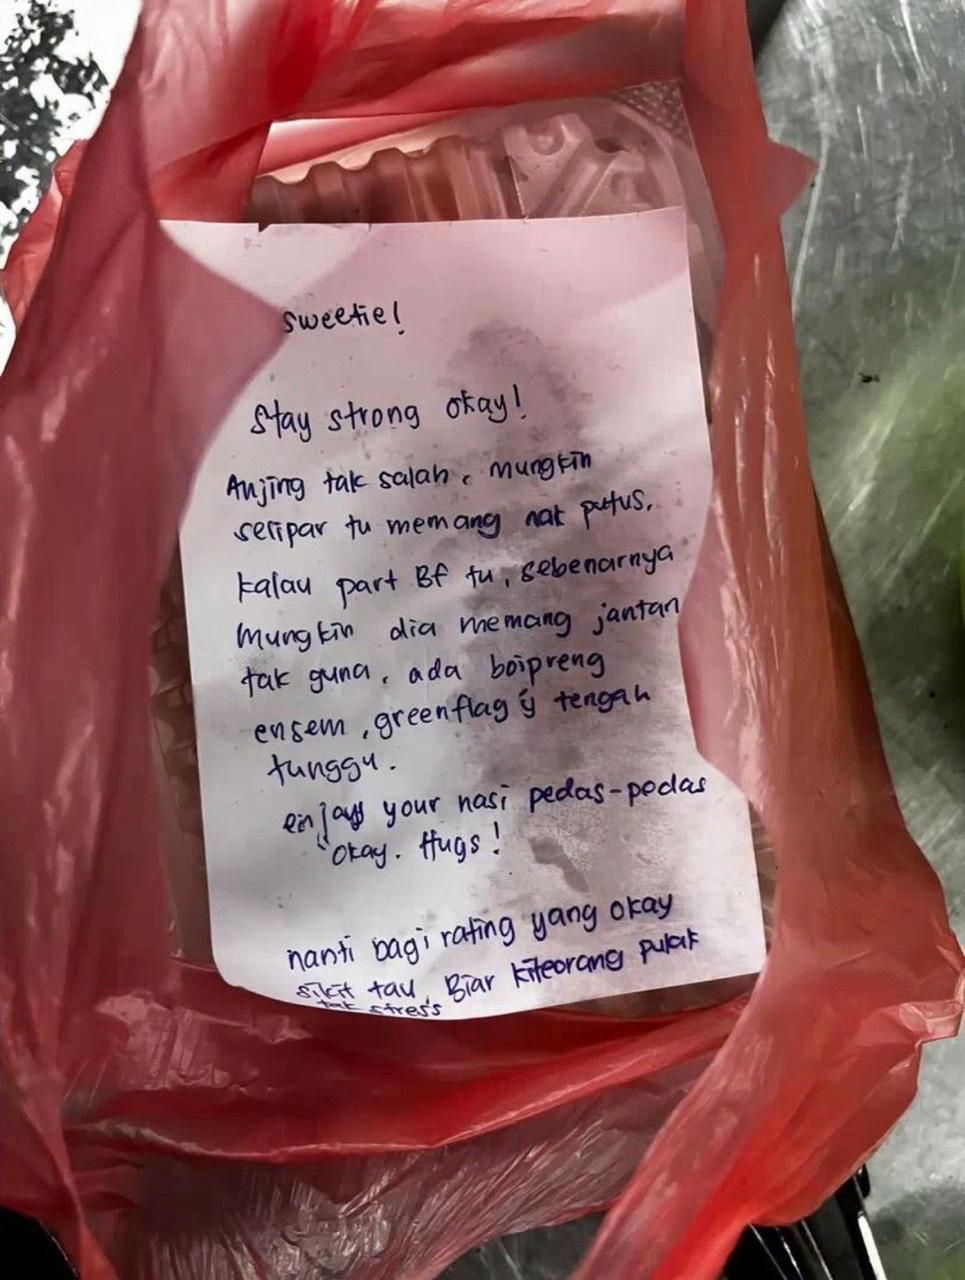 sweetie!
Stay strong okay!
Anjing tak salah, mungkin
seripar tu memang nak putus.
kalau part BF tu, sebenarnya
mungkin dia memang jantan
tak guna, ada boipreng
ensem, greenflag yg tengah
tunggu.
enjoy your nasi pedas-pedas
okay. Hugs!
nanti bagi rating yang okay
sikit tau, Biar kiteorang pulak
tak stress